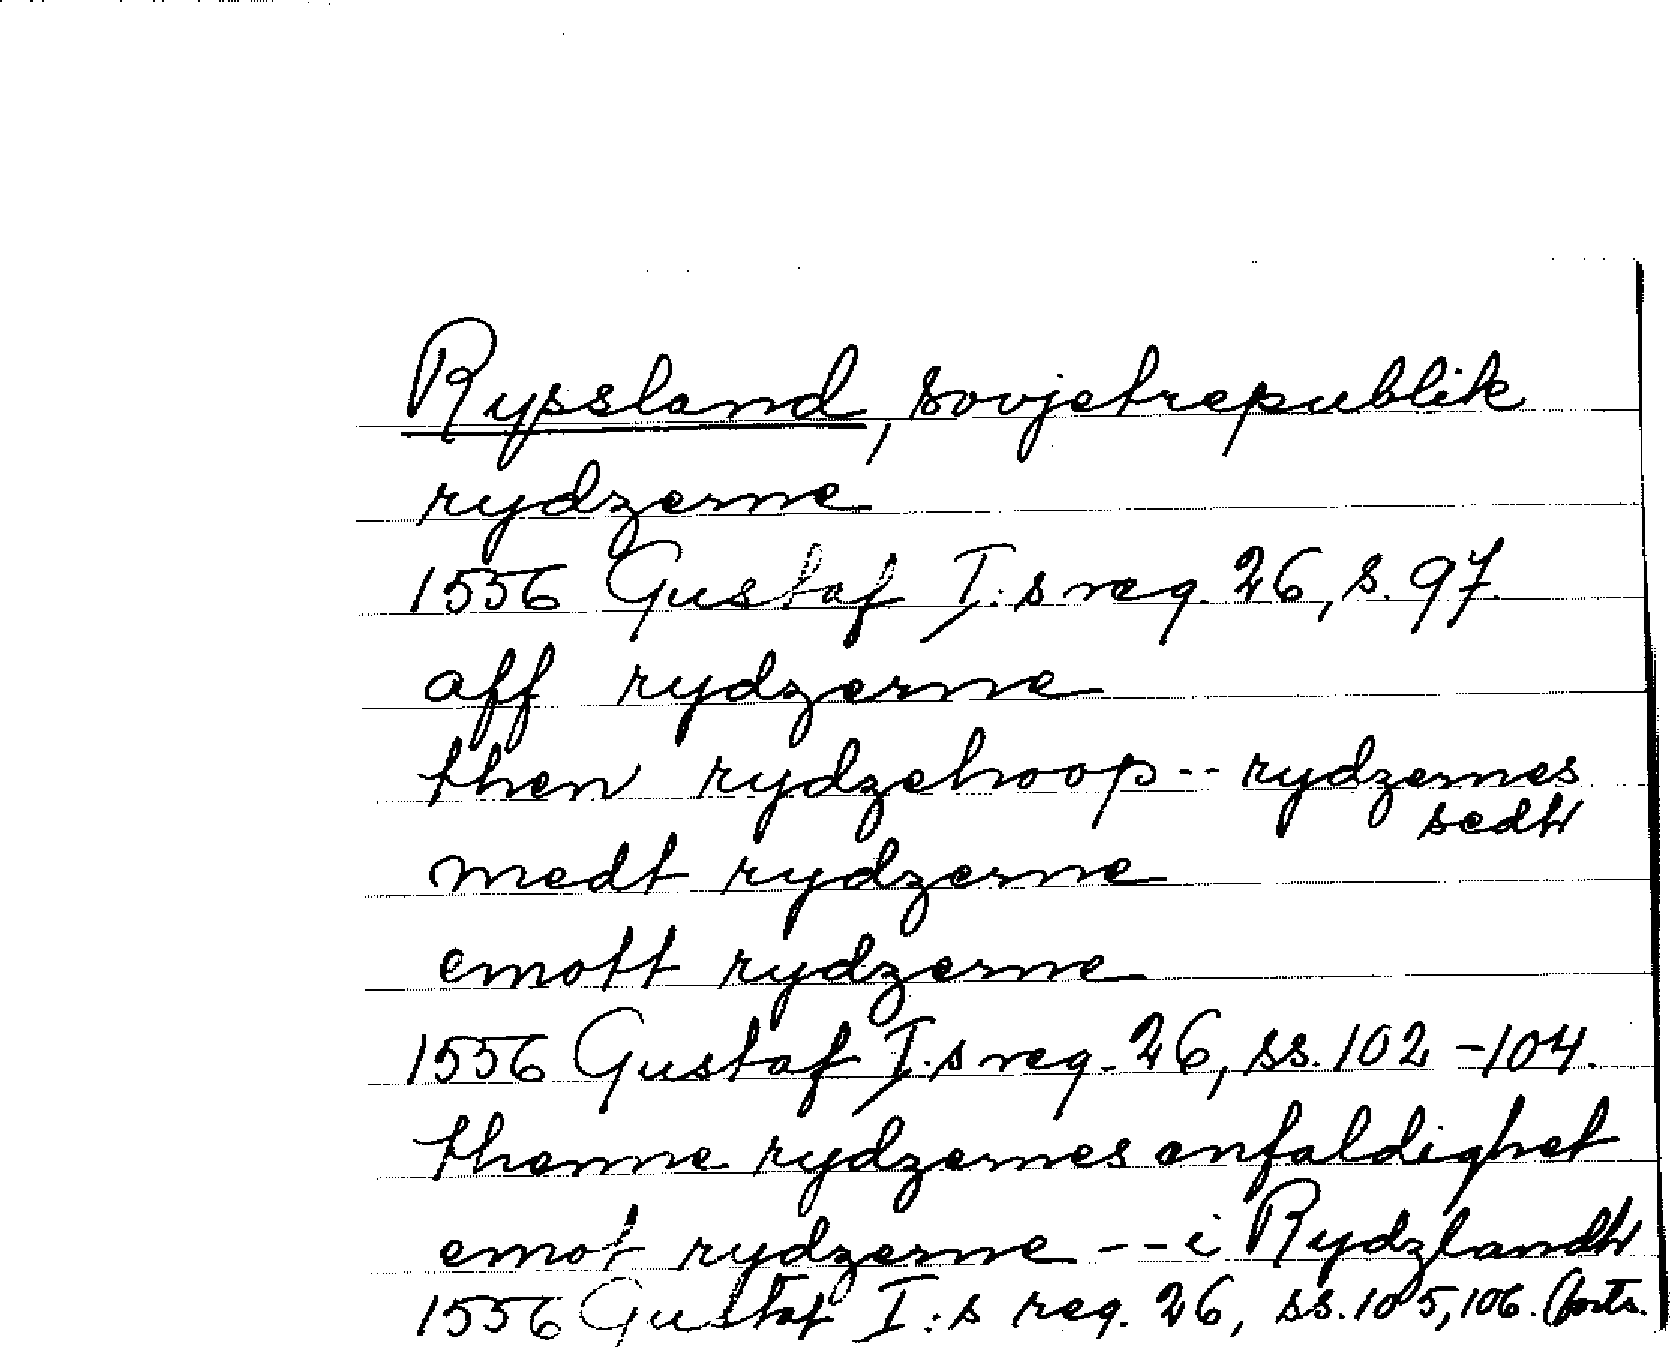 Ryssland, sovjetrepublik
rydzerne
1556 Gustaf I:s reg. 26, s. 97.
aff rydzerne
then rydzehoop -- rydzernes
sedh
medt rydzerne
emott rydzerne
1556 Gustaf I:s reg. 26, ss. 102-104.
thenne rydzernes enfaldighet
emot rydzerne -- i Rydzlandh
1556 Gustaf I:s reg. 26, ss. 105, 106. (forts.